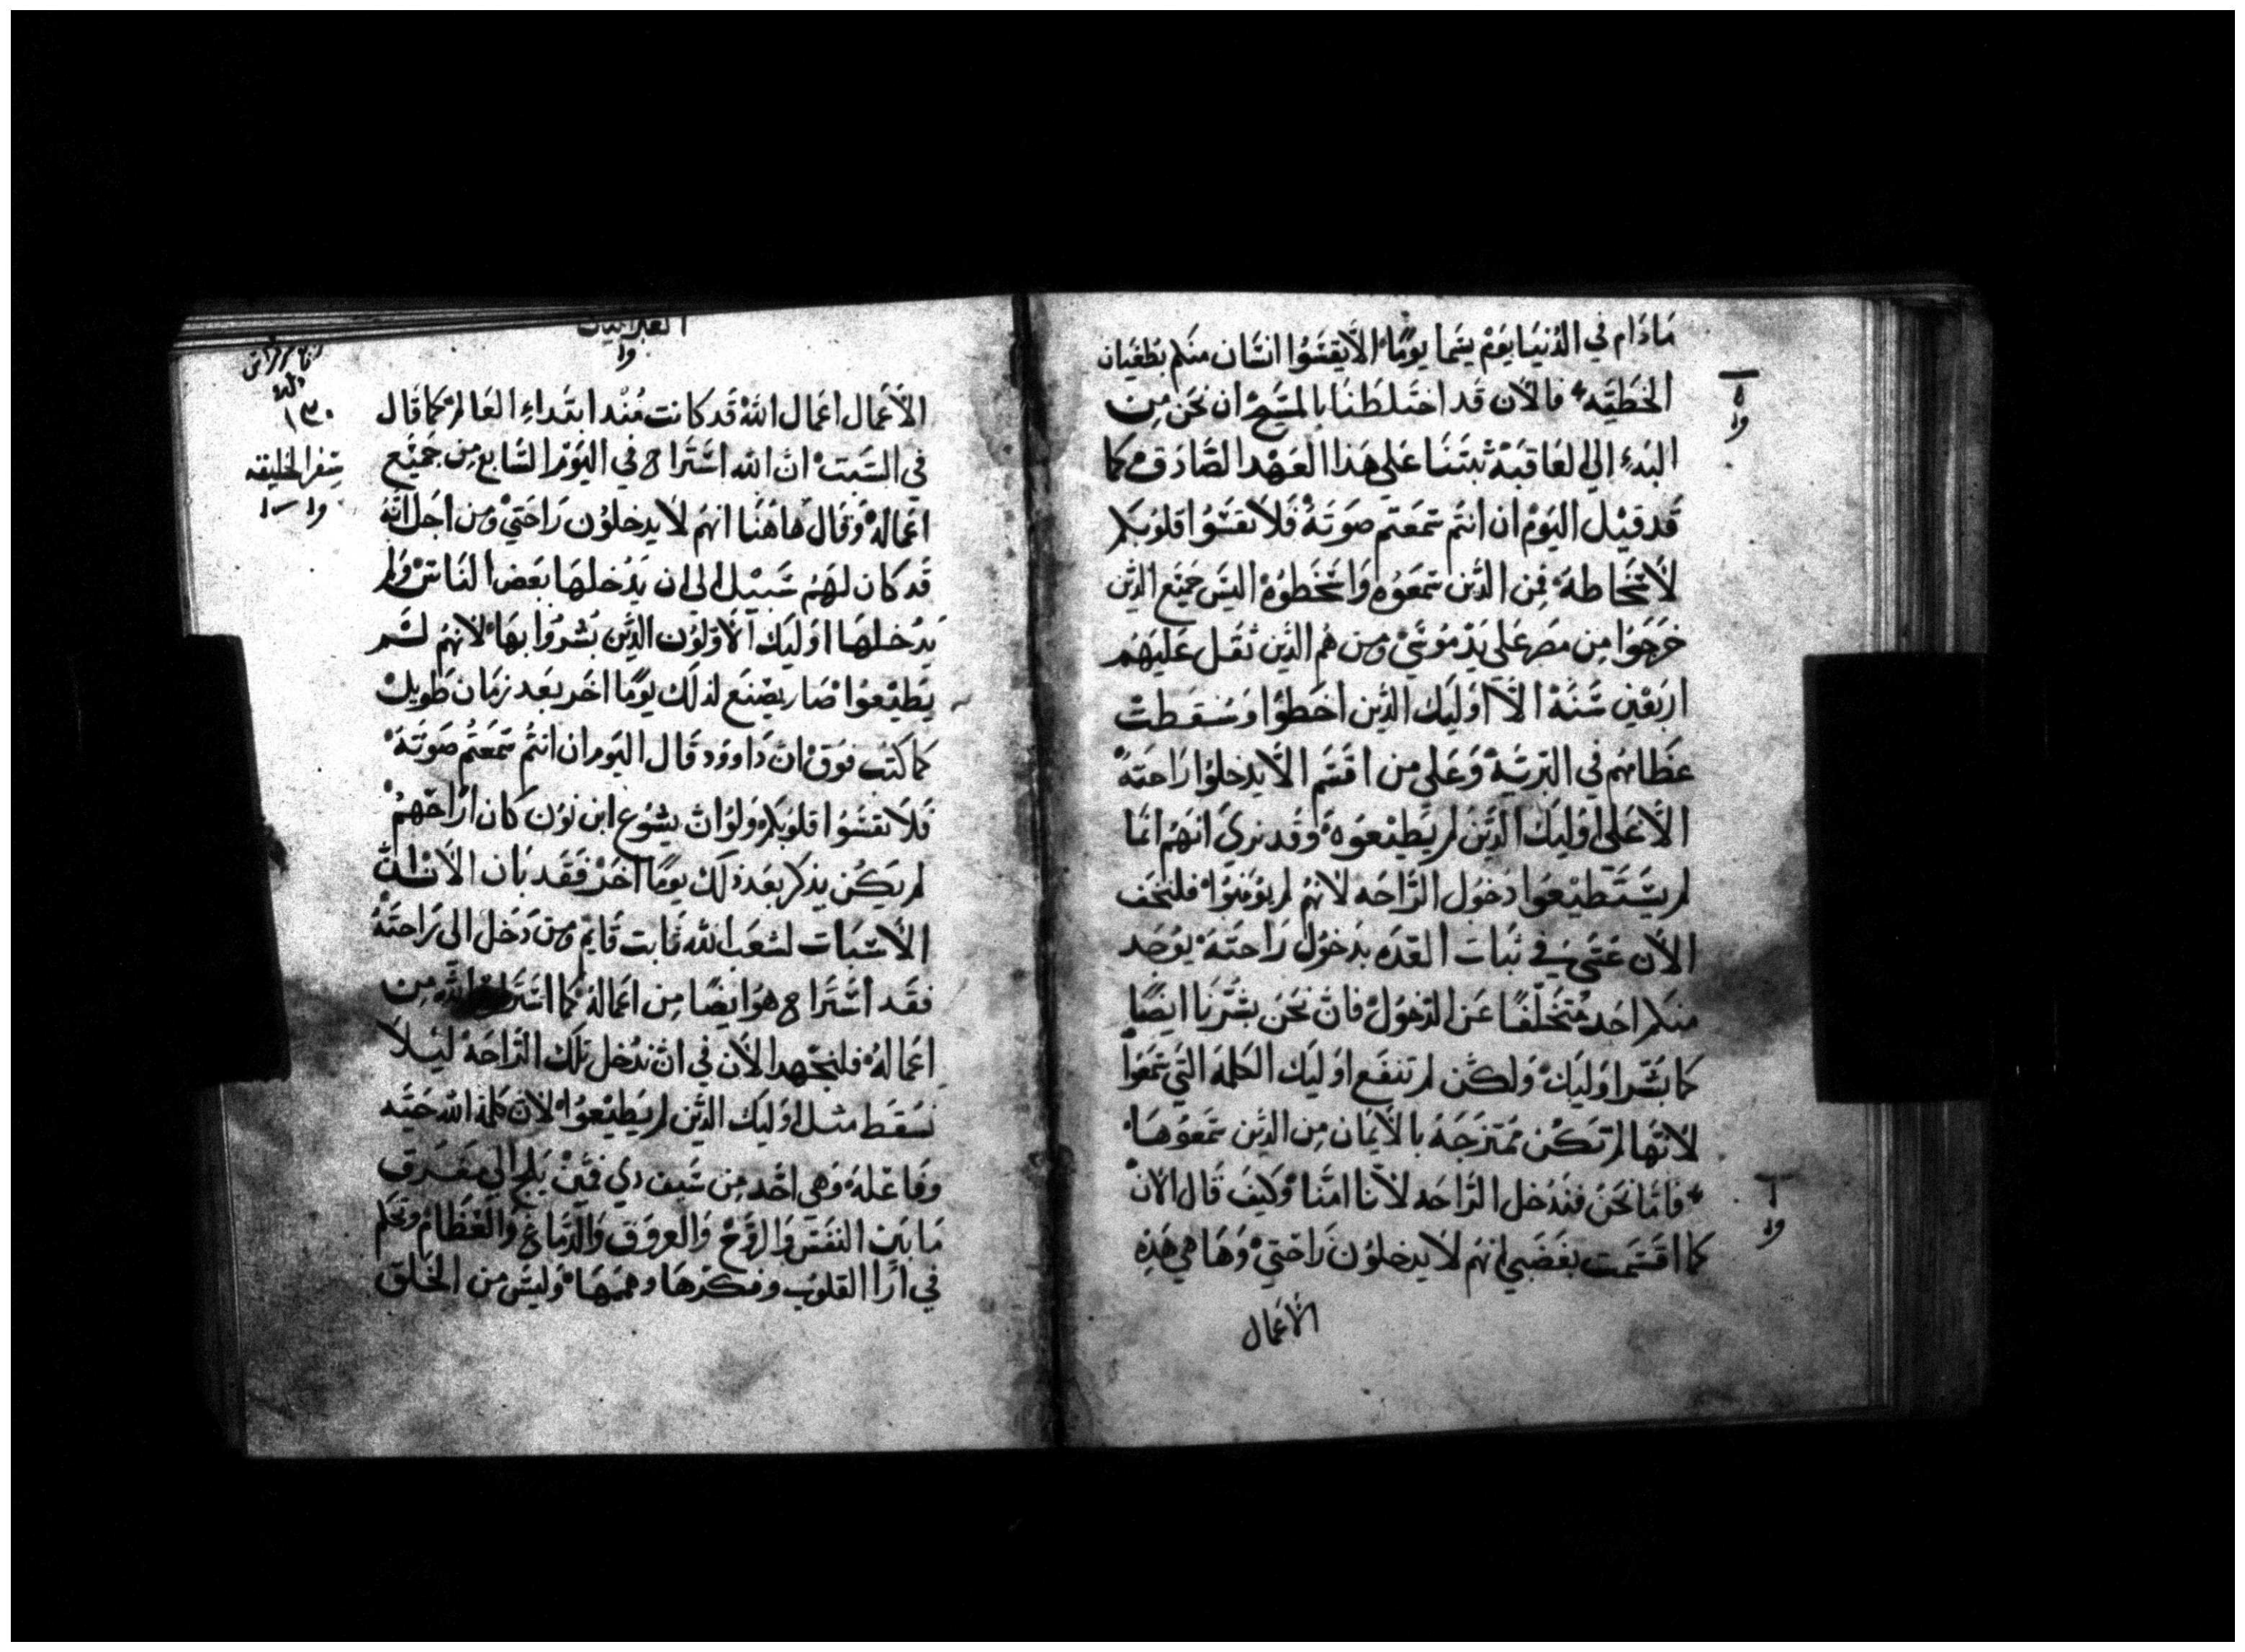 مَادَام في الدُنيَا يَوْم يسَما يَومًا الَّا يقسَوُا انسَان منكم بطغيَان
الخَطيَه فالأن قَد اختلطنَا بالمسَيح ان نحَن مِن
البَدءِ الي العَاقبَة ثبتنَا عَلي هَذا العَهْد الصَّادق كما
قَد قيل اليَوْم ان انتم سَمعَتم صَوتَهُ فَلا تقسَوُا قلوبَكم
لأسخَاطهَ فمِن الذَين سَمعَوُه وَاسخَطوُهْ اليسَ جميَع الذَين
خرَجَوُا مِن مصَر عَلي يَدْ موُسَيْ ومن هُم الذَين ثقل عَليَهم
اربَعْين سَنَهْ الَّا اوَليَك الذَين اخطَوُا وسَقطت
عظَامهُم في البَريَهْ وَعَلي من اقسَم الَّا يدخلوُا رَاحتهَ
الَّا عَلي اوُليَك الذَين لم يَطيْعوَهُ وقَد نرَي انهَم انمَا
لم يسَتَطيْعوَا دخوَل الرَّاحَه لأنهُم لم يوُمنوَا فلنخَف
الأن عَسَي في ثبَات العَدَه بدَخوُل رَاحتَهَ يوُجَد
منكم احَد مُتخلفًا عَن الدَخوَل فان نحَن بشرنَا ايضًا
كما بشَر اوَليَك ولكن لم تنفَع اوَليَك الكلمَة التي سَمعَوُا
لأنهَا لم تكن ممتزجَهَ بالأيمَان مِن الذَين سَمعَوُهَا
فامَا نحَنُ فندَخل الرَّاحَه لأنا امنَا وَكيَف قَال الأن
كما اقسَمت بغَضبَي انهُم لا يدخلوُن رَاحَتي وَهَا هي هَذِه
الأعمَال
ه
ول
٦
ول
العبرانيين
ول
الأعمَال اعَمال اللّه قَد كانت مُنْد ابتَداءِ العَالم كما قَال
في السَبت ان اللّه اسَترَاح في اليَوُم السَّابع مِن جميَع
اعَمالهَ وقَال هَا هُنَا انهُم لا يدخلوُن رَاحتي ومن اجَل انهُ
قَد كان لهَم سَبيْل الي ان يَدُخلهَا بعَض النَاس وَلم
يَدُخلهَا اوَليَك الأوَلوُن الذَين بُشروُا بهَا لأنهُم لم
يَطيْعوَا صَار يصنَع لذلَك يوَمًا اخَر بعَد زمَان طَويل
كما كتب فوَق ان دَاووَد قَال اليَوم ان انتُم سَمعَتم صَوتَهَ
فَلا تقسَوُا قلوُبَكم وَلوُ ان يشوُع ابن نوَن كان ارَاحَهمْ
لم يكن يذكر بعَد ذلَك يوَمًا اخَر فقَد بَان الأن ان
الأسَبات لشعَب اللّه ثابت قَايم ومن دَخل الي رَاحتَهُ
فقَد اسَترَاح هوَ ايضًا مِن اعَمالهَ كما اسَترَاح اللّه مِن
اعَمالهُ فلنجتهَد الأن في ان ندَخل تلكَ الرَّاحَهَ ليَلا
نسَقَط مثل اوَليَك الذَين لم يَطيْعوَا لأن كلمَة اللّه حَيَه
وفَاعَلهَ وَهي احَد مِن سَيف دي فمَين يَلج الي مفرَق
مَا بَين النفَس وَالروَح وَالعروَق وَالدَّمَاغ وَالعَظَام وتحكم
في ارَا القلوُب وفكرَهَا وهمَهَا وَليسَ مِن الخَلق
١٣٠
سفر الخليقه